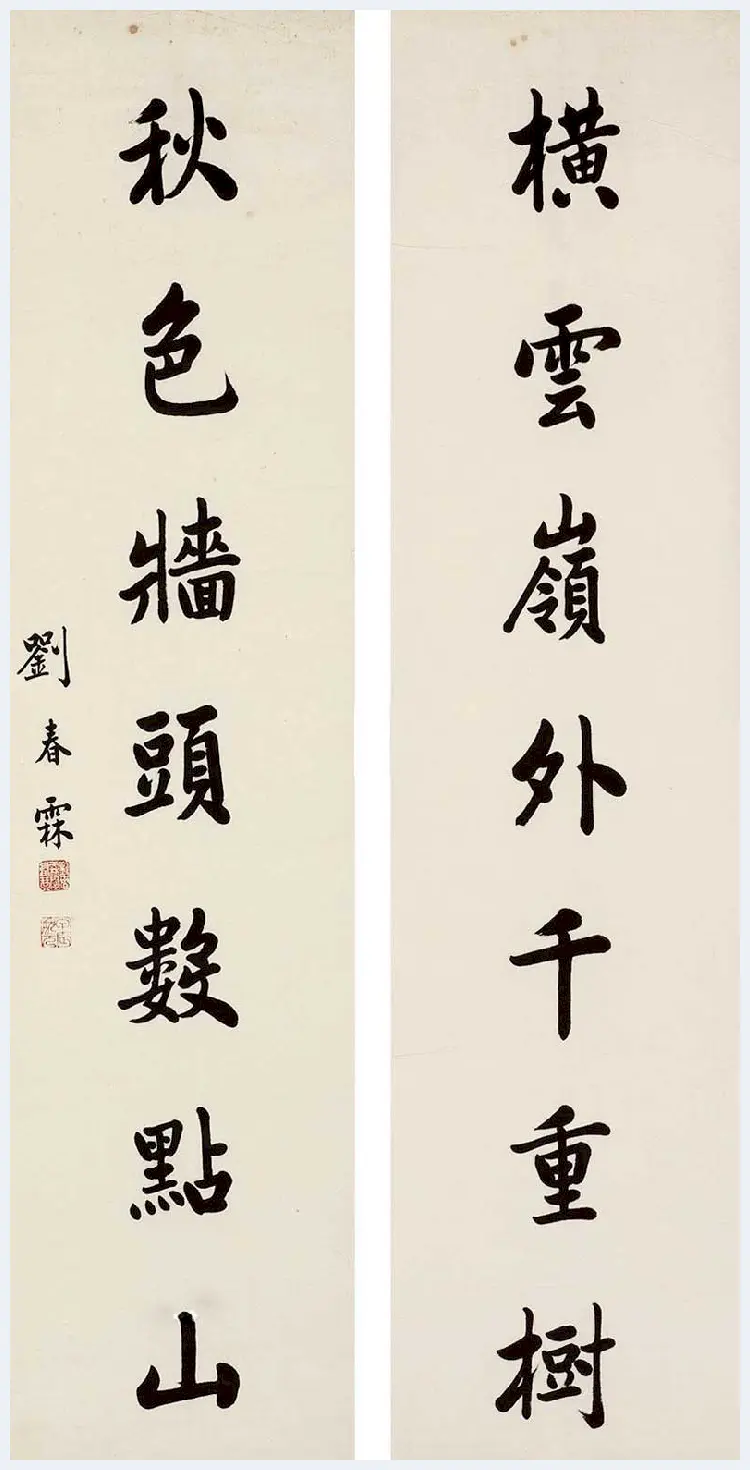 橫雲嶺外千重樹
秋色牆頭數點山
劉春霖